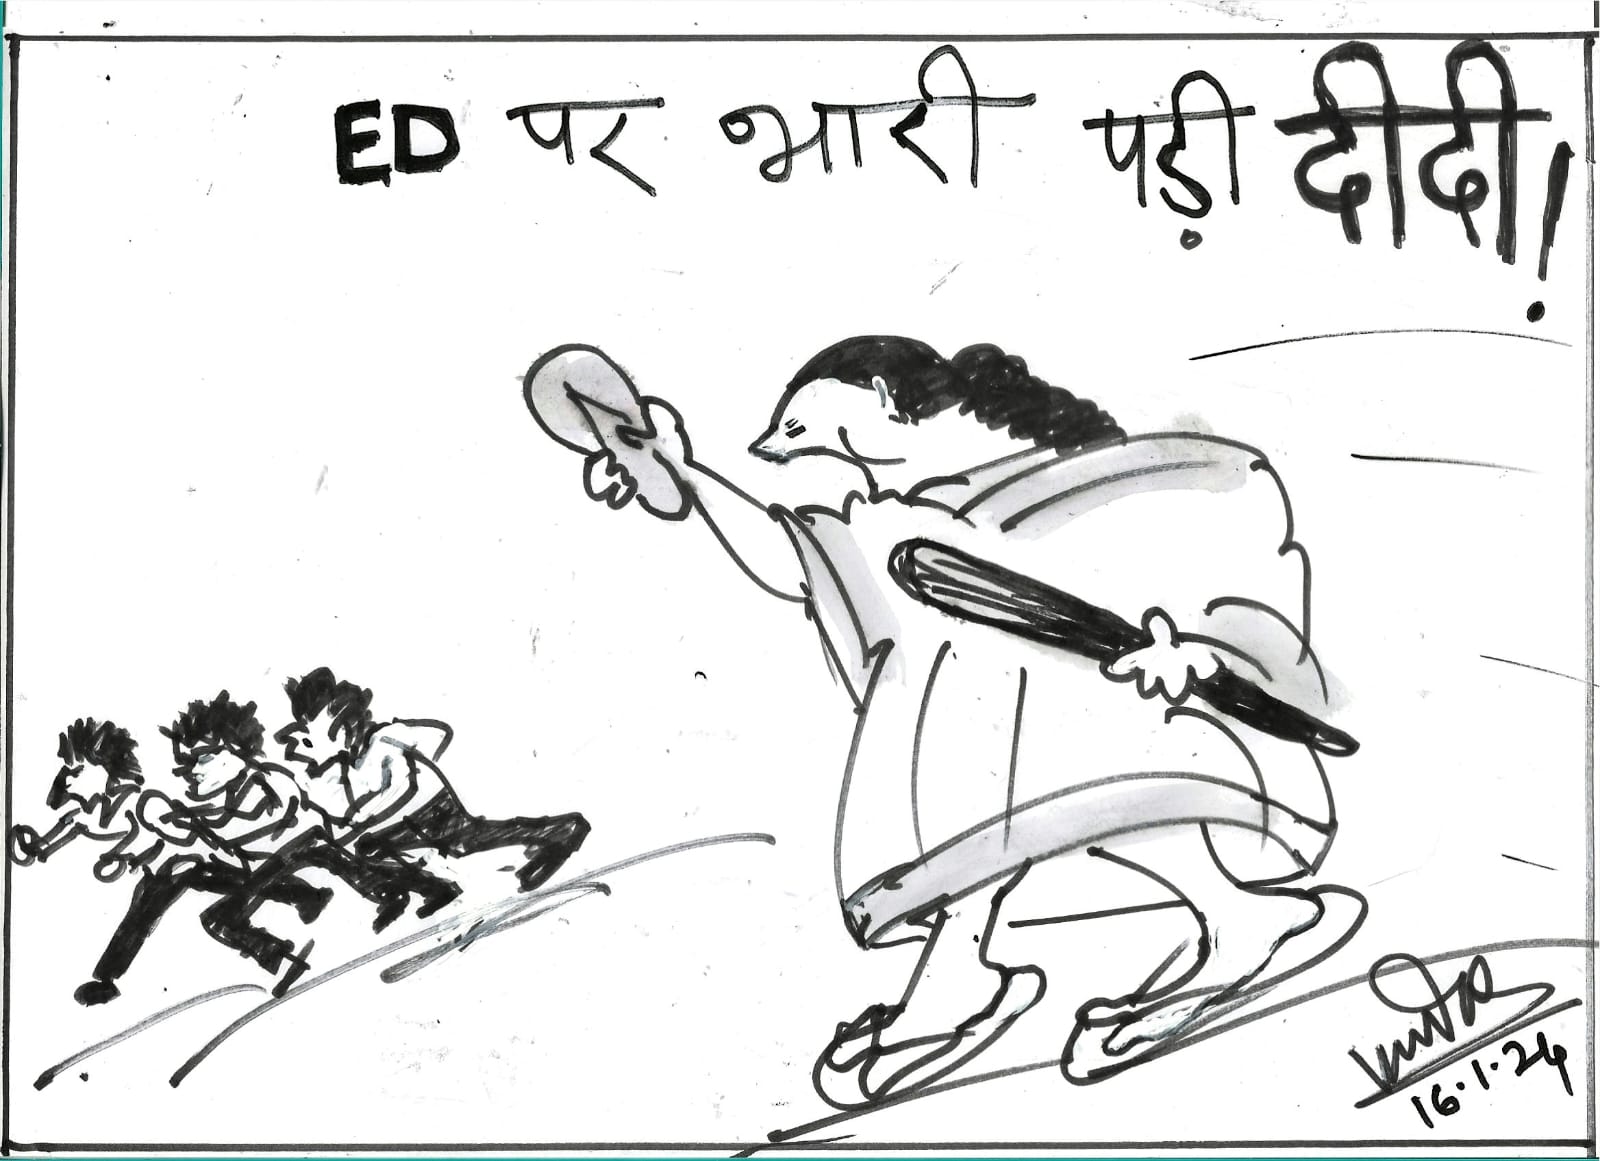 ED पर भारी पड़ी दीदी!
16.1.24